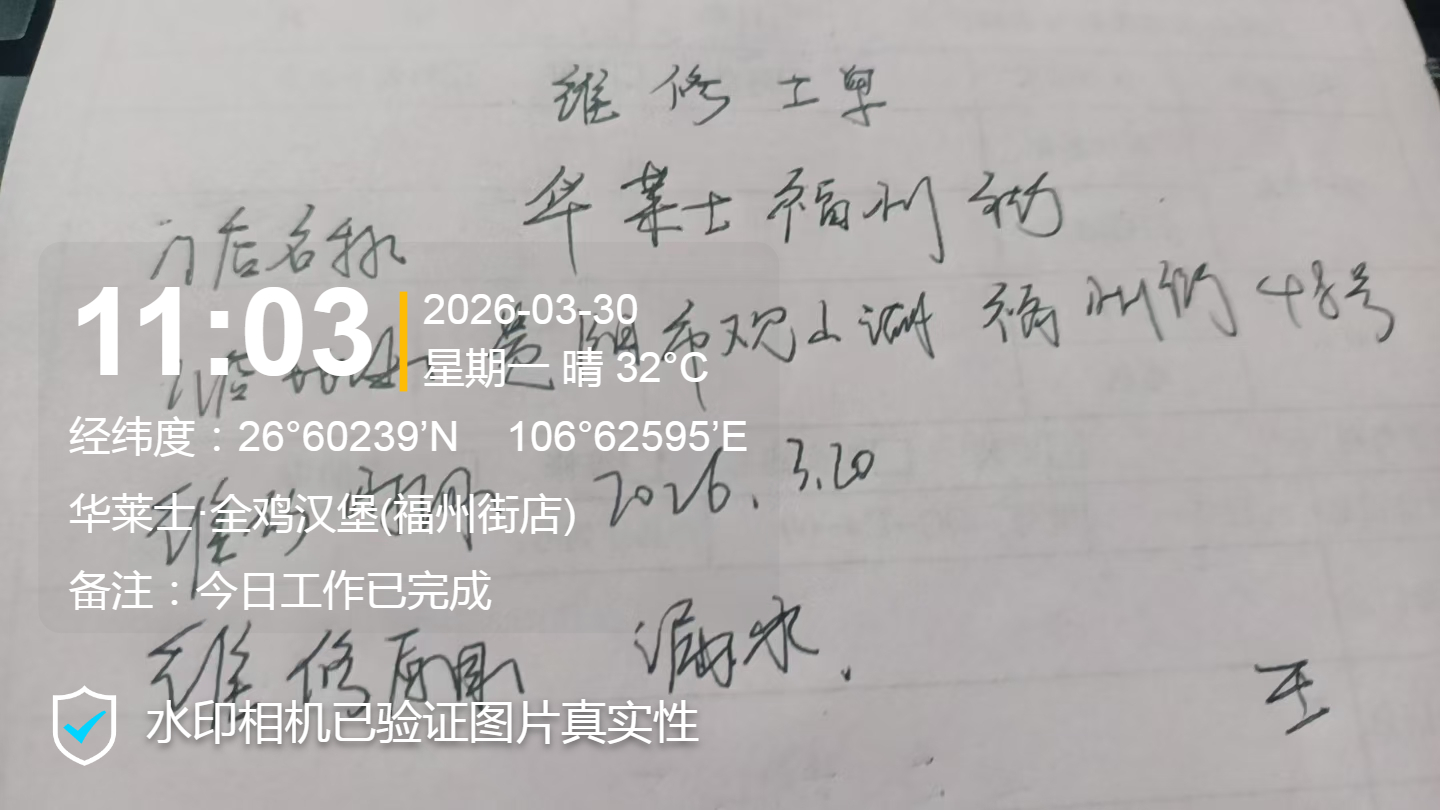 维修工单
门店名称 华莱士福州街
门店地址 贵阳市观山湖福州街48号
维修时间 2026.3.20
维修原因 漏水.
王
11:03
2026-03-30
星期一 晴 32°C
经纬度：26°60239’N 106°62595’E
华莱士·全鸡汉堡(福州街店)
备注：今日工作已完成
水印相机已验证图片真实性